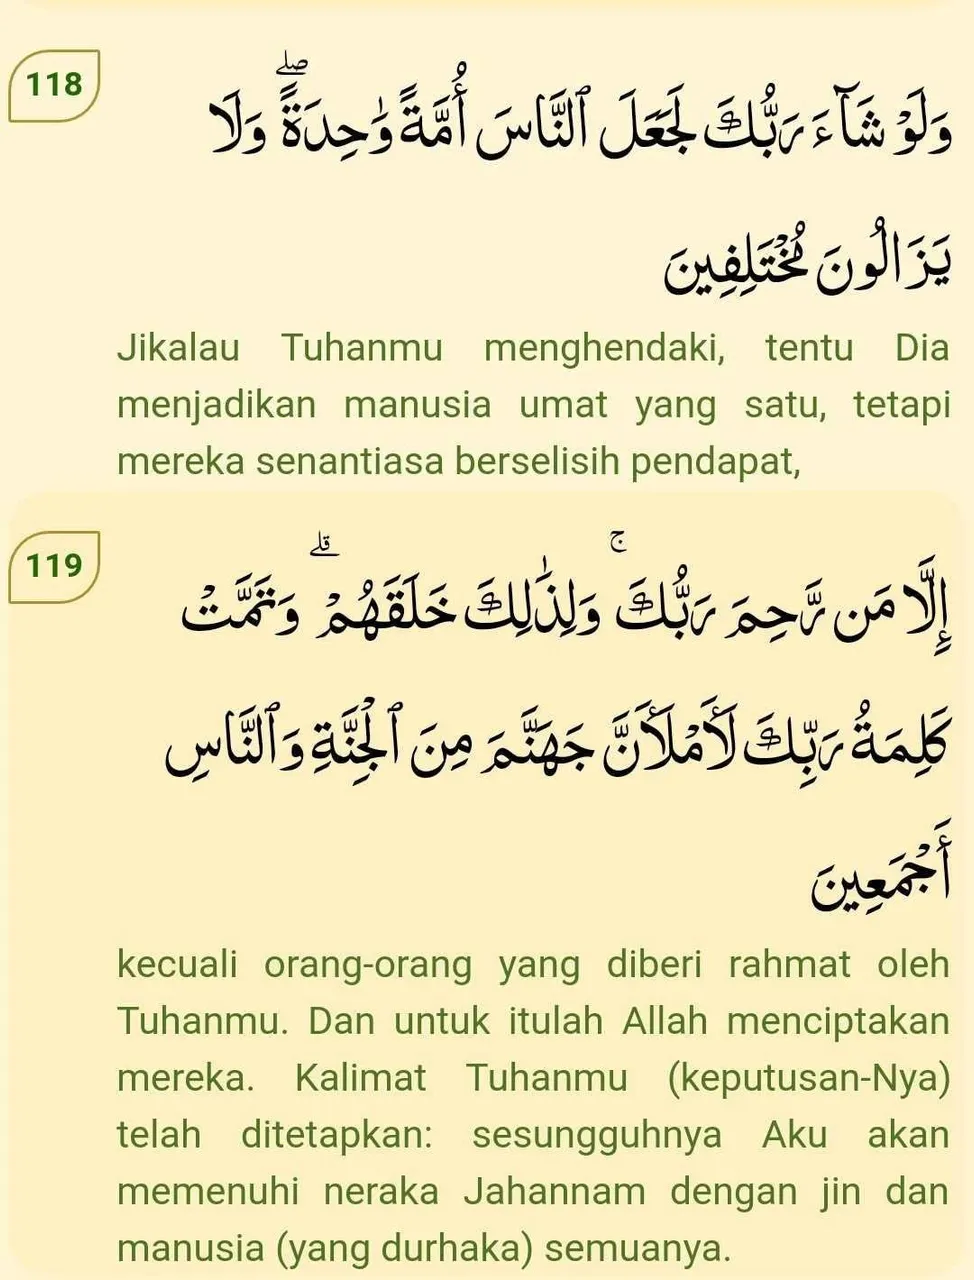 118
وَلَوْ شَآءَ رَبُّكَ لَجَعَلَ ٱلنَّاسَ أُمَّةً وَٰحِدَةً ۖ وَلَا
يَزَالُونَ مُخْتَلِفِينَ
Jikalau Tuhanmu menghendaki, tentu Dia
menjadikan manusia umat yang satu, tetapi
mereka senantiasa berselisih pendapat,
119
إِلَّا مَن رَّحِمَ رَبُّكَ ۚ وَلِذَٰلِكَ خَلَقَهُمْ ۗ وَتَمَّتْ
كَلِمَةُ رَبِّكَ لَأَمْلَأَنَّ جَهَنَّمَ مِنَ ٱلْجِنَّةِ وَٱلنَّاسِ
أَجْمَعِينَ
kecuali orang-orang yang diberi rahmat oleh
Tuhanmu. Dan untuk itulah Allah menciptakan
mereka. Kalimat Tuhanmu (keputusan-Nya)
telah ditetapkan: sesungguhnya Aku akan
memenuhi neraka Jahannam dengan jin dan
manusia (yang durhaka) semuanya.